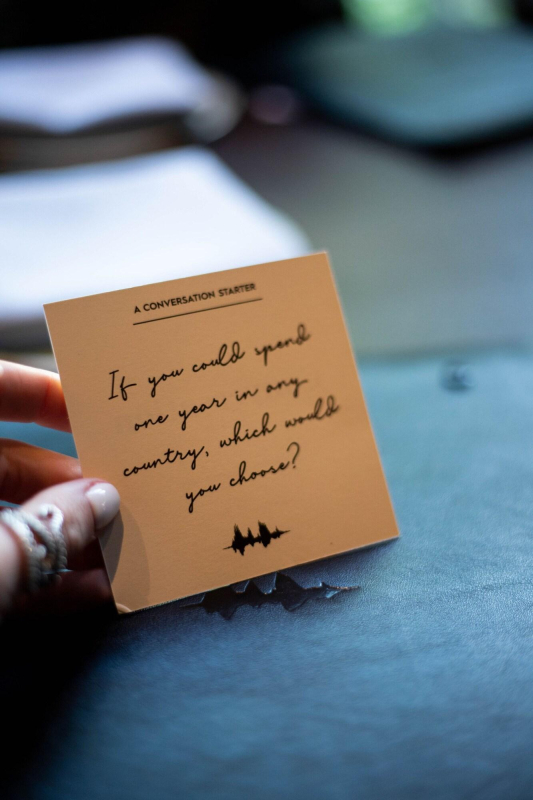 A CONVERSATION STARTER
If you could spend
one year in any
country, which would
you choose?